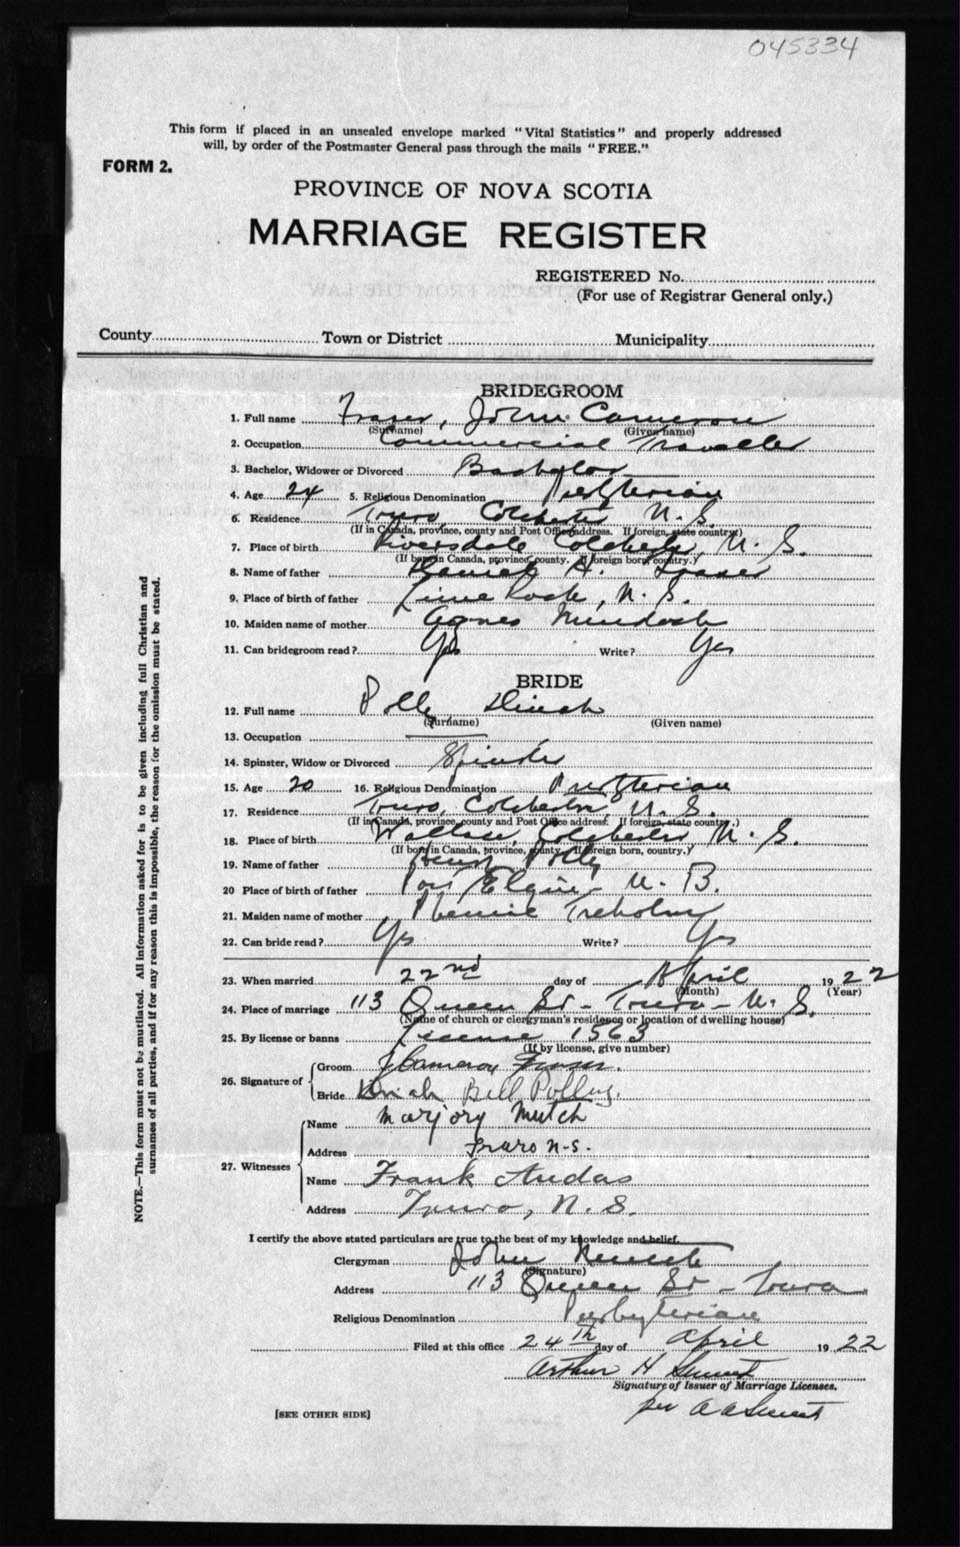 045334
This form if placed in an unsealed envelope marked "Vital Statistics" and properly addressed
will, by order of the Postmaster General pass through the mails "FREE."
FORM 2.
PROVINCE OF NOVA SCOTIA
MARRIAGE REGISTER
REGISTERED No.
(For use of Registrar General only.)
County Town or District Municipality
BRIDEGROOM
1. Full name Fraser, John Cameron
(Surname) (Given name)
2. Occupation Commercial Traveller
3. Bachelor, Widower or Divorced Bachelor
4. Age 24 5. Religious Denomination Presbyterian
6. Residence Truro, Colchester N.S.
(If in Canada, province, county and Post Office address. If foreign, state country)
7. Place of birth Riversdale Colchester, N.S.
(If born in Canada, province, county. If foreign born, country.)
8. Name of father Daniel A. Fraser
9. Place of birth of father Lime Rock, N.S.
10. Maiden name of mother Agnes Murdock
11. Can bridegroom read? Yes Write? Yes
BRIDE
12. Full name Polly Dinah
(Surname) (Given name)
13. Occupation
14. Spinster, Widow or Divorced Spinster
15. Age 20 16. Religious Denomination Presbyterian
17. Residence Truro, Colchester, N.S.
(If in Canada, province, county and Post Office address. If foreign, state country.)
18. Place of birth Wallace, Colchester N.S.
(If born in Canada, province, county. If foreign born, country.)
19. Name of father Henry Polly
20 Place of birth of father Port Elgin, N.B.
21. Maiden name of mother Treholm
22. Can bride read? Yes Write? Yes
23. When married 22nd day of April 1922
(Month) (Year)
24. Place of marriage 113 Queen St - Truro - N.S.
(Name of church or clergyman's residence or location of dwelling house)
25. By license or banns License 1563
(If by license, give number)
26. Signature of
Groom J Cameron Fraser.
Bride Dinah Bell Polley.
27. Witnesses
Name Marjory Mutch
Address Truro N-S.
Name Frank Audas
Address Truro, N.S.
I certify the above stated particulars are true to the best of my knowledge and belief.
Clergyman John Mutch
(Signature)
Address 113 Queen St - Truro
Religious Denomination Presbyterian
Filed at this office 24th day of April 1922
Arthur H
Signature of Issuer of Marriage Licenses.
per A A
[SEE OTHER SIDE]
NOTE.—This form must not be mutilated. All information asked for is to be given including full Christian and
surnames of all parties, and if for any reason this is impossible, the reason for the omission must be stated.